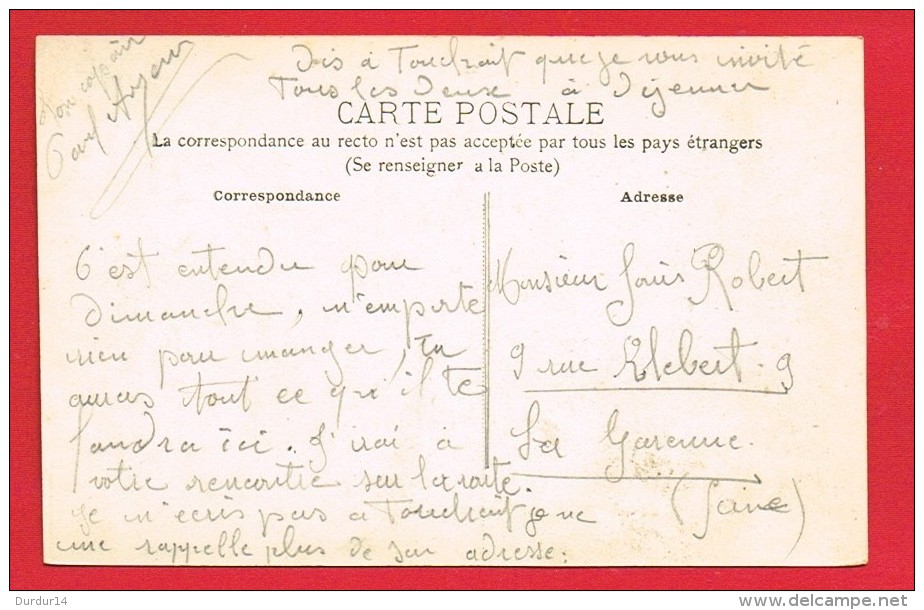 Dis à Touchait que je vous invite
Tous les Deux à Déjeuner
Ton copain
Paul
CARTE POSTALE
La correspondance au recto n'est pas acceptée par tous les pays étrangers
(Se renseigner a la Poste)
Correspondance
Adresse
C'est entendu pour
dimanche, n'emporte
rien pour manger, tu
auras tout ce qu'il te
faudra ici. J'irai à
votre rencontre sur la route.
Je n'ecris pas a Touchait je ne
me rappelle plus de son adresse.
Monsieur Louis Robert
9 rue Klebert. 9
La Garenne.
(Seine)
Durdur14
delcampe.net